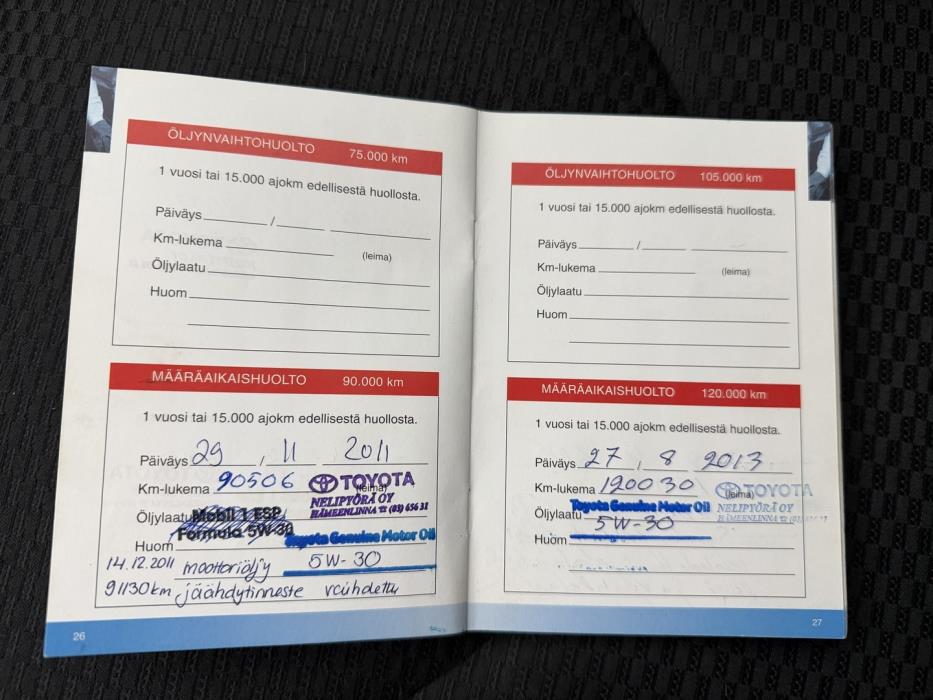 ÖLJYNVAIHTOHUOLTO 75.000 km
1 vuosi tai 15.000 ajokm edellisestä huollosta.
Päiväys / 
Km-lukema
(leima)
Öljylaatu
Huom
MÄÄRÄAIKAISHUOLTO 90.000 km
1 vuosi tai 15.000 ajokm edellisestä huollosta.
Päiväys 29 / 11 2011
Km-lukema 90506 (leima) TOYOTA
NELIPYÖRÄ OY
HÄMEENLINNA ☎ (03) 656 31
Öljylaatu Mobil 1 ESP
Formula 5W-30
Toyota Genuine Motor Oil
Huom
14.12.2011 moottoriöljy 5W-30
91130 km jäähdytinneste vaihdettu
26
ÖLJYNVAIHTOHUOLTO 105.000 km
1 vuosi tai 15.000 ajokm edellisestä huollosta.
Päiväys /
Km-lukema
(leima)
Öljylaatu
Huom
MÄÄRÄAIKAISHUOLTO 120.000 km
1 vuosi tai 15.000 ajokm edellisestä huollosta.
Päiväys 27 / 8 2013
Km-lukema 120030 (leima) TOYOTA
NELIPYÖRÄ OY
HÄMEENLINNA ☎ (03)
Toyota Genuine Motor Oil
Öljylaatu 5W-30
Huom
27